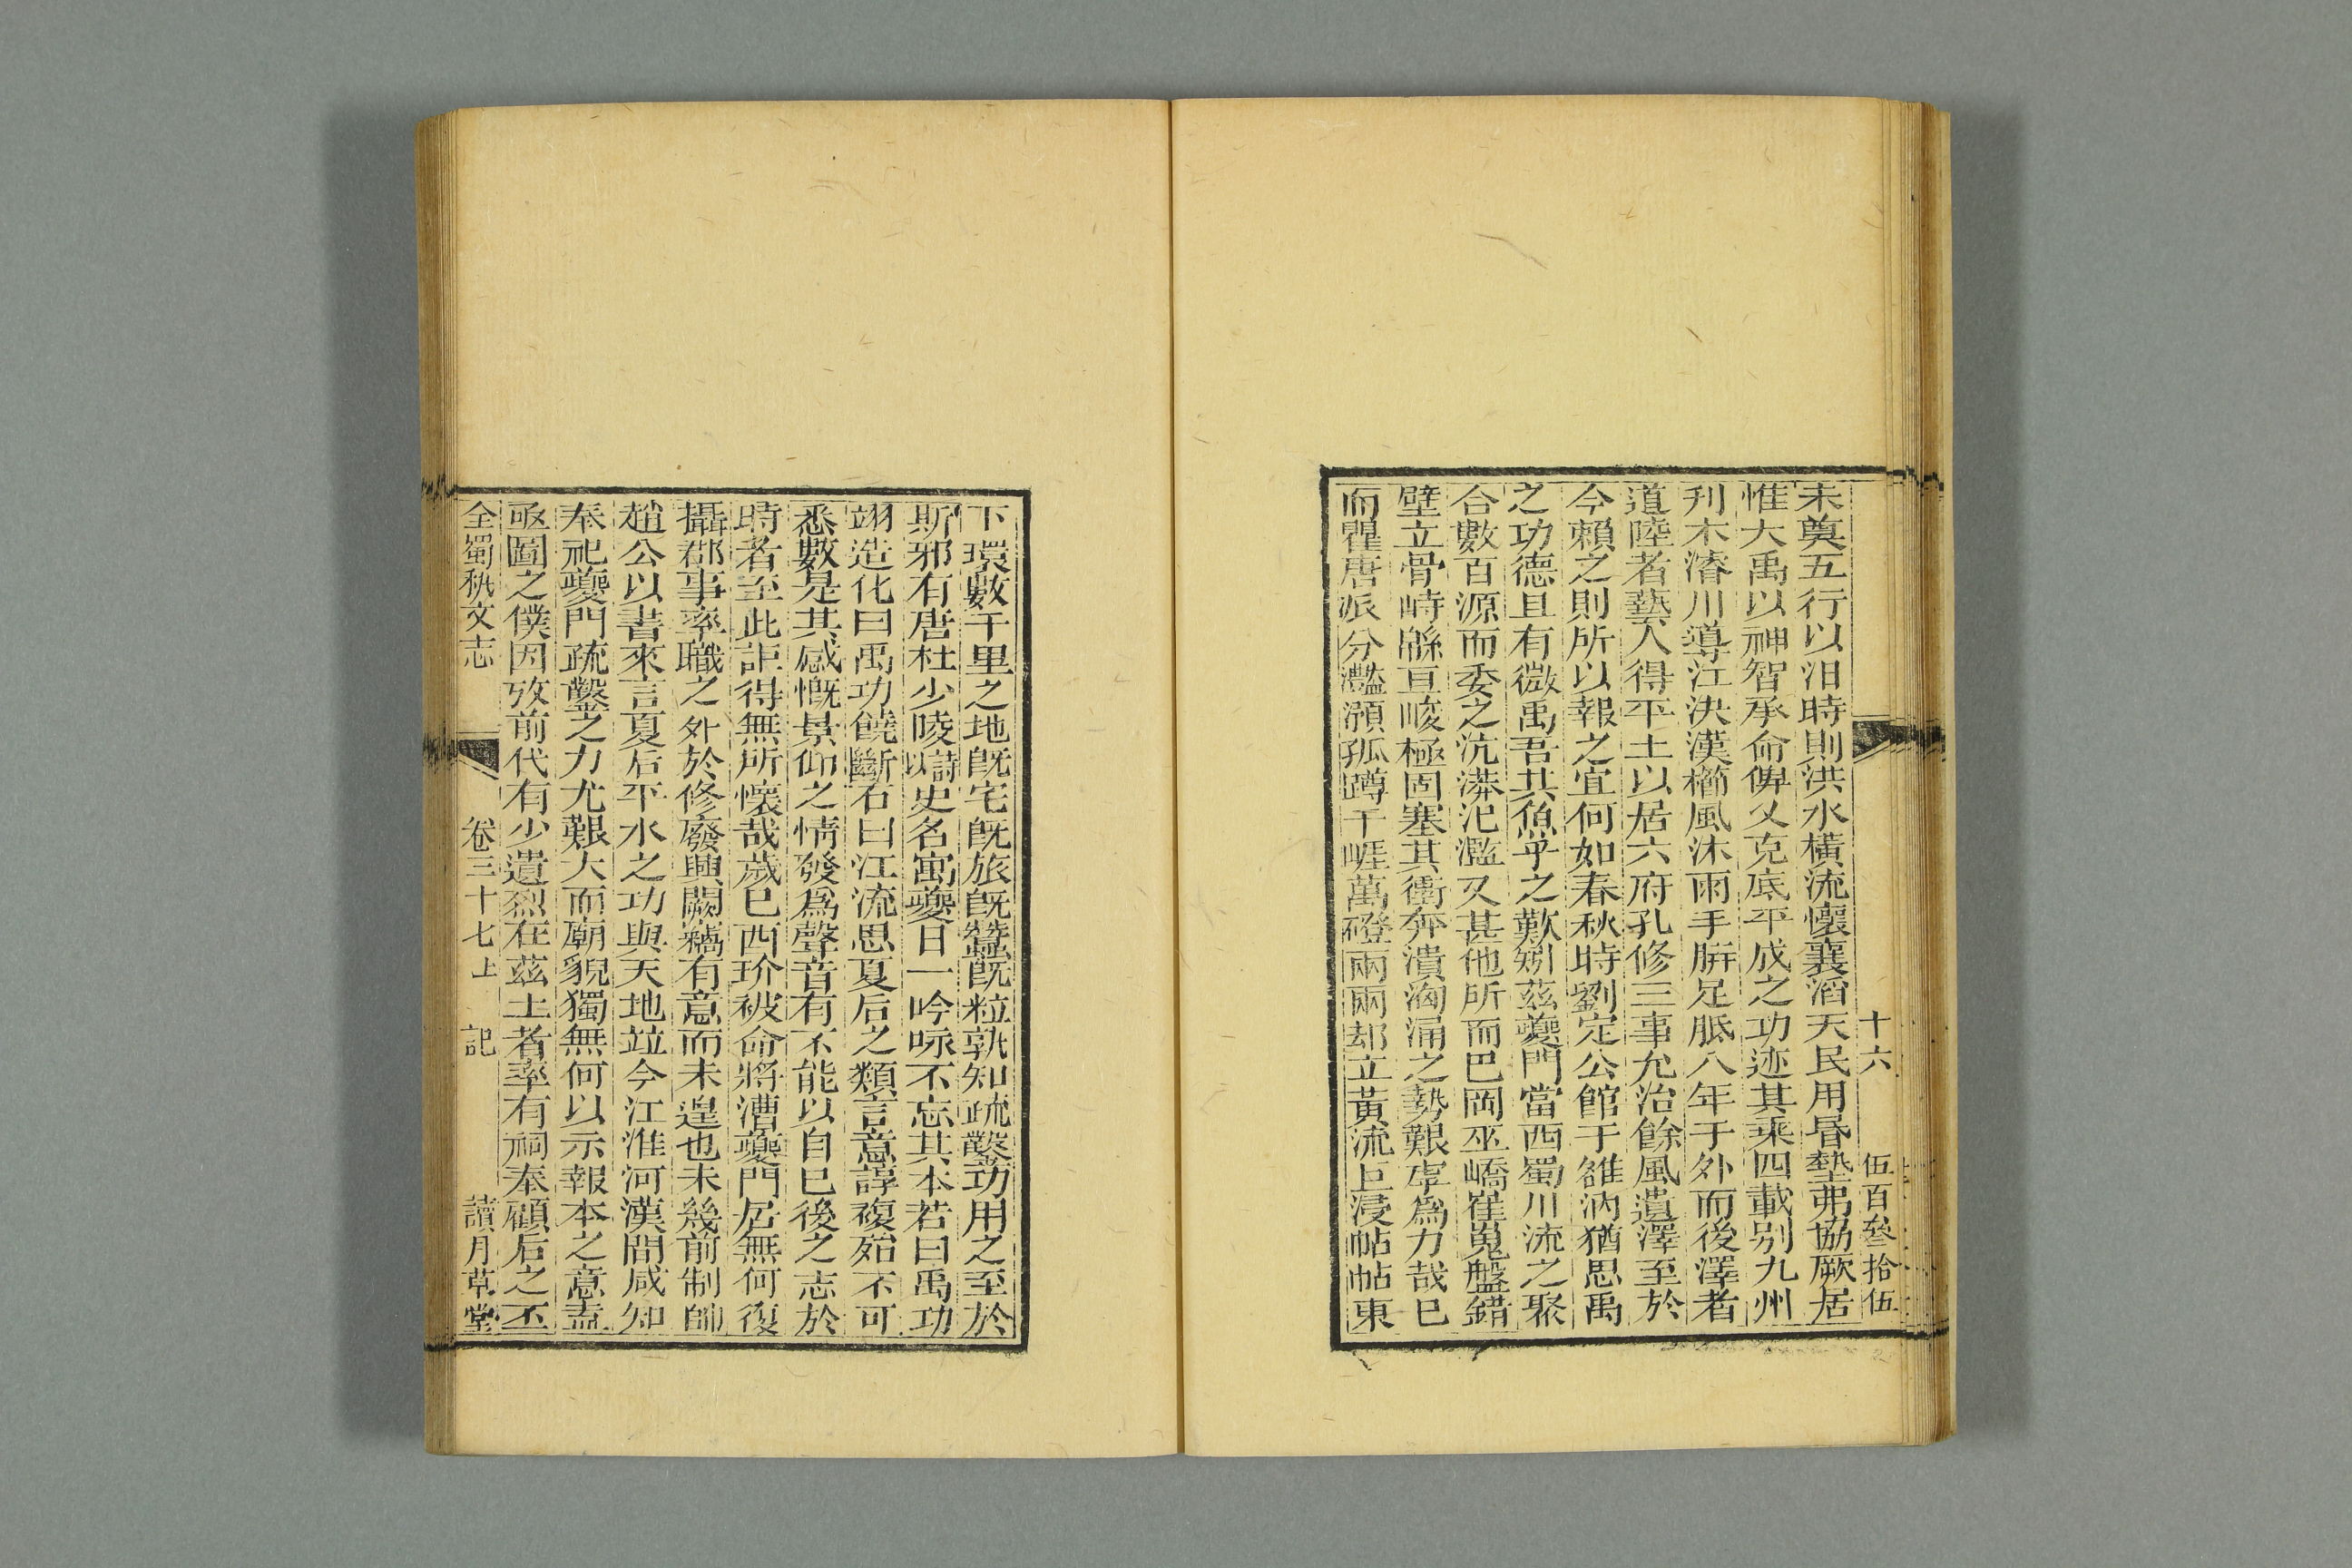 十六 伍百叁拾伍
未奠五行以汨時則洪水橫流懷襄滔天民用昏墊弗協厥居
惟大禹以神智承命俾乂克底平成之功迹其乘四載别九州
刋木濬川導江決漢櫛風沐雨手胼足胝八年于外而後澤者
道陸者藝人得平土以居六府孔修三事允治餘風遺澤至於
今賴之則所以報之宜何如春秋時劉定公館于雒汭猶思禹
之功德且有微禹吾其魚乎之歎矧茲夔門當西蜀川流之聚
合數百源而委之沆漭汜濫又甚他所而巴岡巫嶠崔嵬盤錯
壁立骨峙緜亘峻極固塞其衝奔潰洶涌之勢艱虖爲力哉巳
而瞿唐派分灩澦孤蹲千崕萬磴兩兩却立黃流巨浸帖帖東
下環數千里之地旣宅旣旅旣蠶旣粒孰知疏鑿功用之至於
斯邪有唐杜少陵以詩史名寓夔日一吟咏不忘其本若曰禹功
翊造化曰禹功饒斷石曰江流思夏后之類言意諄複殆不可
悉數是其感慨景仰之情發爲聲音有不能以自巳後之志於
時者至此詎得無所懷哉歲巳酉玠被命將漕夔門居無何復
攝郡事率職之外於修廢興闕竊有意而未遑也未幾前制帥
趙公以書來言夏后平水之功與天地竝今江淮河漢間咸知
奉祀夔門疏鑿之力尤艱大而廟貌獨無何以示報本之意盍
亟圖之僕因攷前代有少遺烈在茲土者率有祠奉顧后之丕
全蜀秇文志 卷三十七上 記 讀月草堂